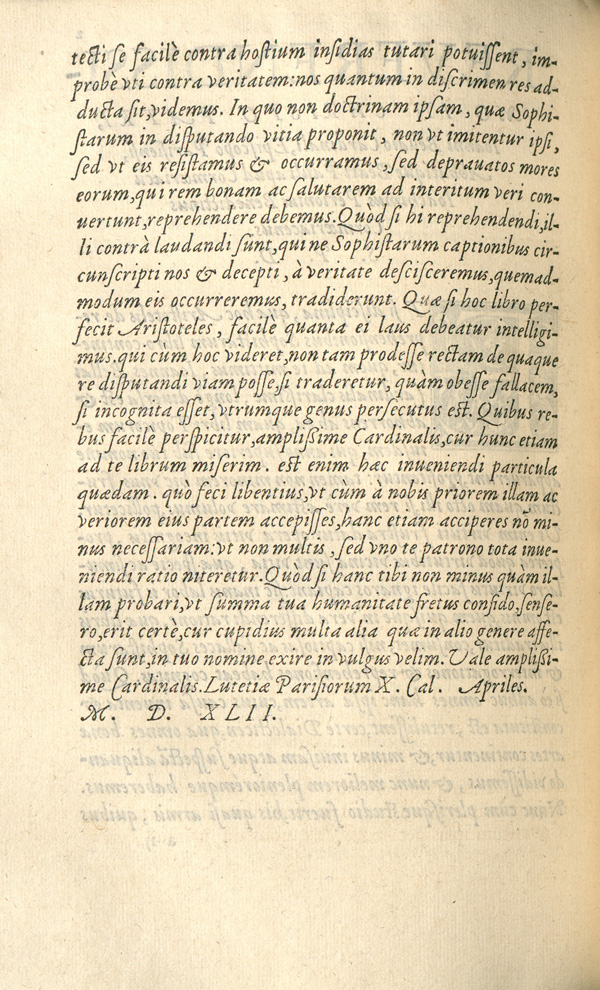 tecti se facilè contra hostium insidias tutari potuissent, im-
probè vti contra veritatem: nos quantum in discrimen res ad-
ducta sit, videmus. In quo non doctrinam ipsam, quæ Sophi-
starum in disputando vitia proponit, non vt imitentur ipsi,
sed vt eis resistamus & occurramus, sed deprauatos mores
eorum, qui rem bonam ac salutarem ad interitum veri con-
uertunt, reprehendere debemus. Quòd si hi reprehendendi, il-
li contrà laudandi sunt, qui ne Sophistarum captionibus cir-
cunscripti nos & decepti, à veritate descisceremus, quemad-
modum eis occurreremus, tradiderunt. Quæ si hoc libro per-
fecit Aristoteles, facilè quanta ei laus debeatur intelligi-
mus. qui cùm hoc videret, non tam prodesse rectam de quaque
re disputandi viam posse, si traderetur, quàm obesse fallacem,
si incognita esset, vtrumque genus persecutus est. Quibus re-
bus facilè perspicitur, amplissime Cardinalis, cur hunc etiam
ad te librum miserim. est enim hæc inueniendi particula
quædam. quò feci libentius, vt cùm à nobis priorem illam ac
veriorem eius partem accepisses, hanc etiam acciperes nō mi-
nus necessariam: vt non multis, sed vno te patrono tota inue-
niendi ratio niteretur. Quòd si hanc tibi non minus quàm il-
lam probari, vt summa tua humanitate fretus confido. sense-
ro, erit certè, cur cupidius multa alia quæ in alio genere affe-
cta sunt, in tuo nomine exire in vulgus velim. Vale amplissi-
me Cardinalis. Lutetiæ Parisiorum X. Cal. Apriles.
M. D. XLII.